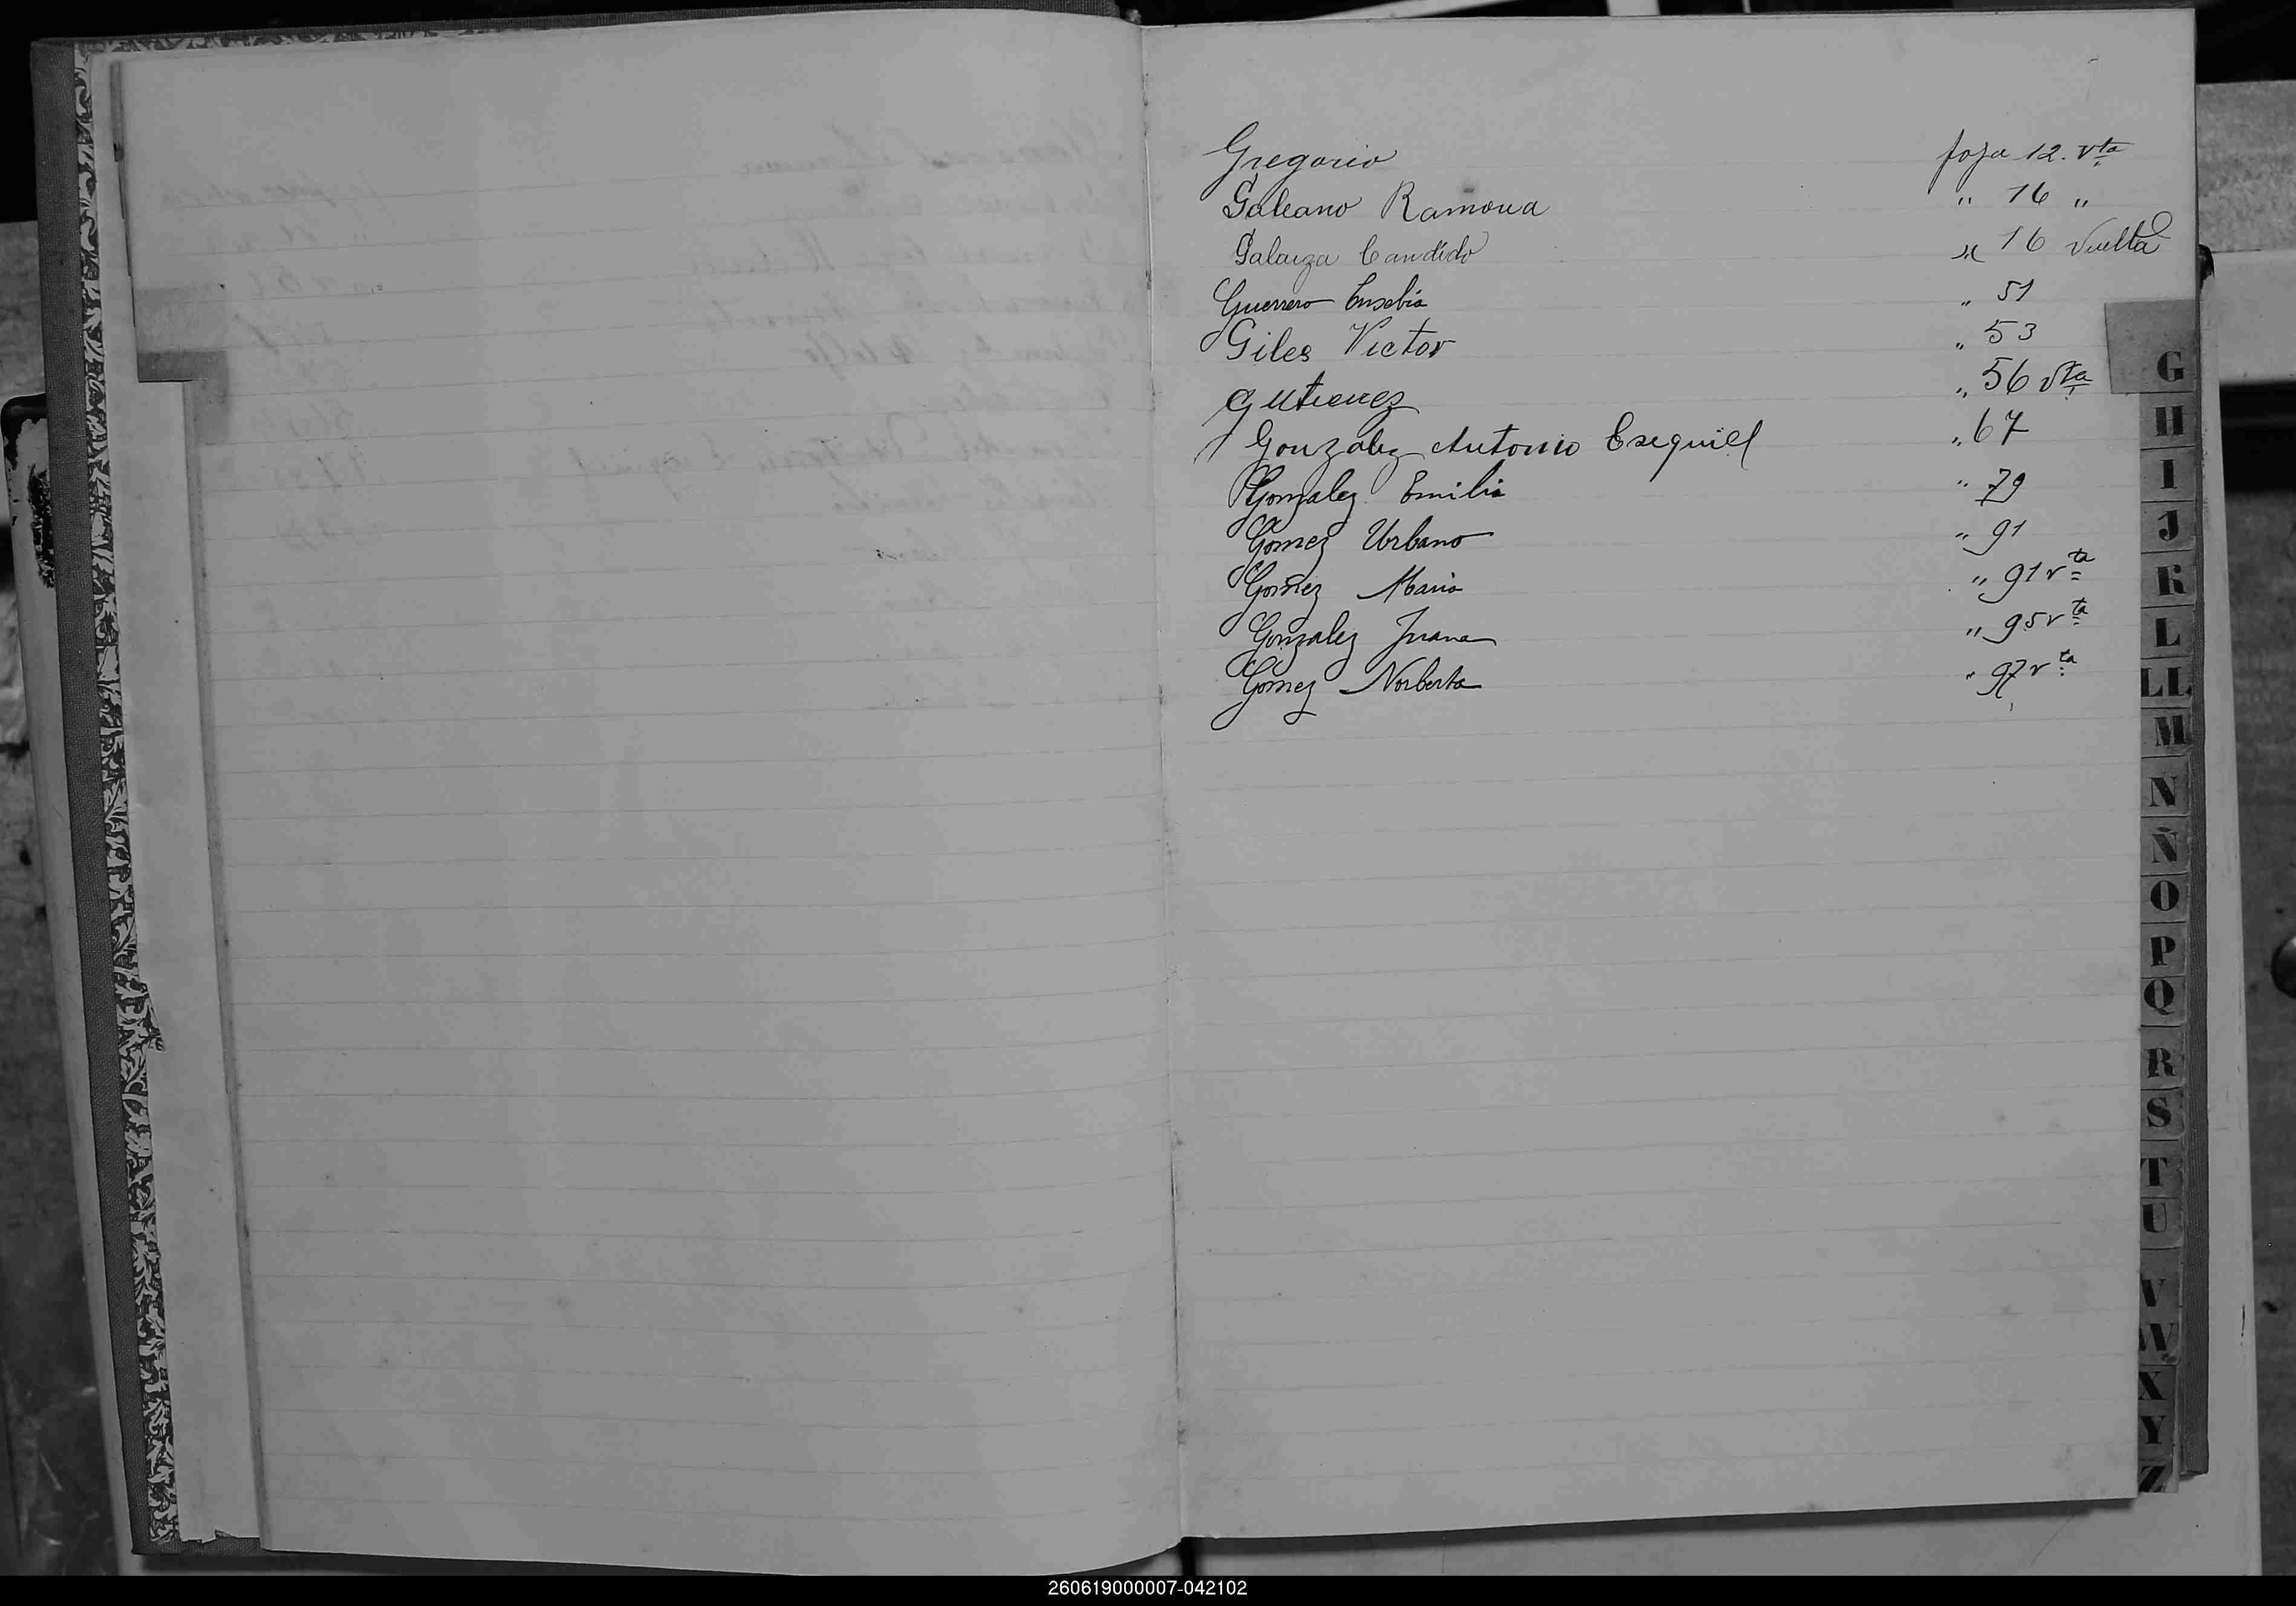 Gregorio foja 12. vta
Galeano Ramona " 16 "
Galarza Candido " 16 Vuelta
Guerrero Eusebia " 51
Giles Victor " 53
Gutierrez " 56 vta
Gonzalez Antonio Esequiel " 67
Gonzalez Emilia " 79
Gomez Urbano " 91
Gomez Maria " 91 vta
Gonzalez Juana " 95 vta
Gomez Norberta " 97 vta
G
H
I
J
K
L
LL
M
N
Ñ
O
P
Q
R
S
T
U
V
W
X
Y
Z
260619000007-042102